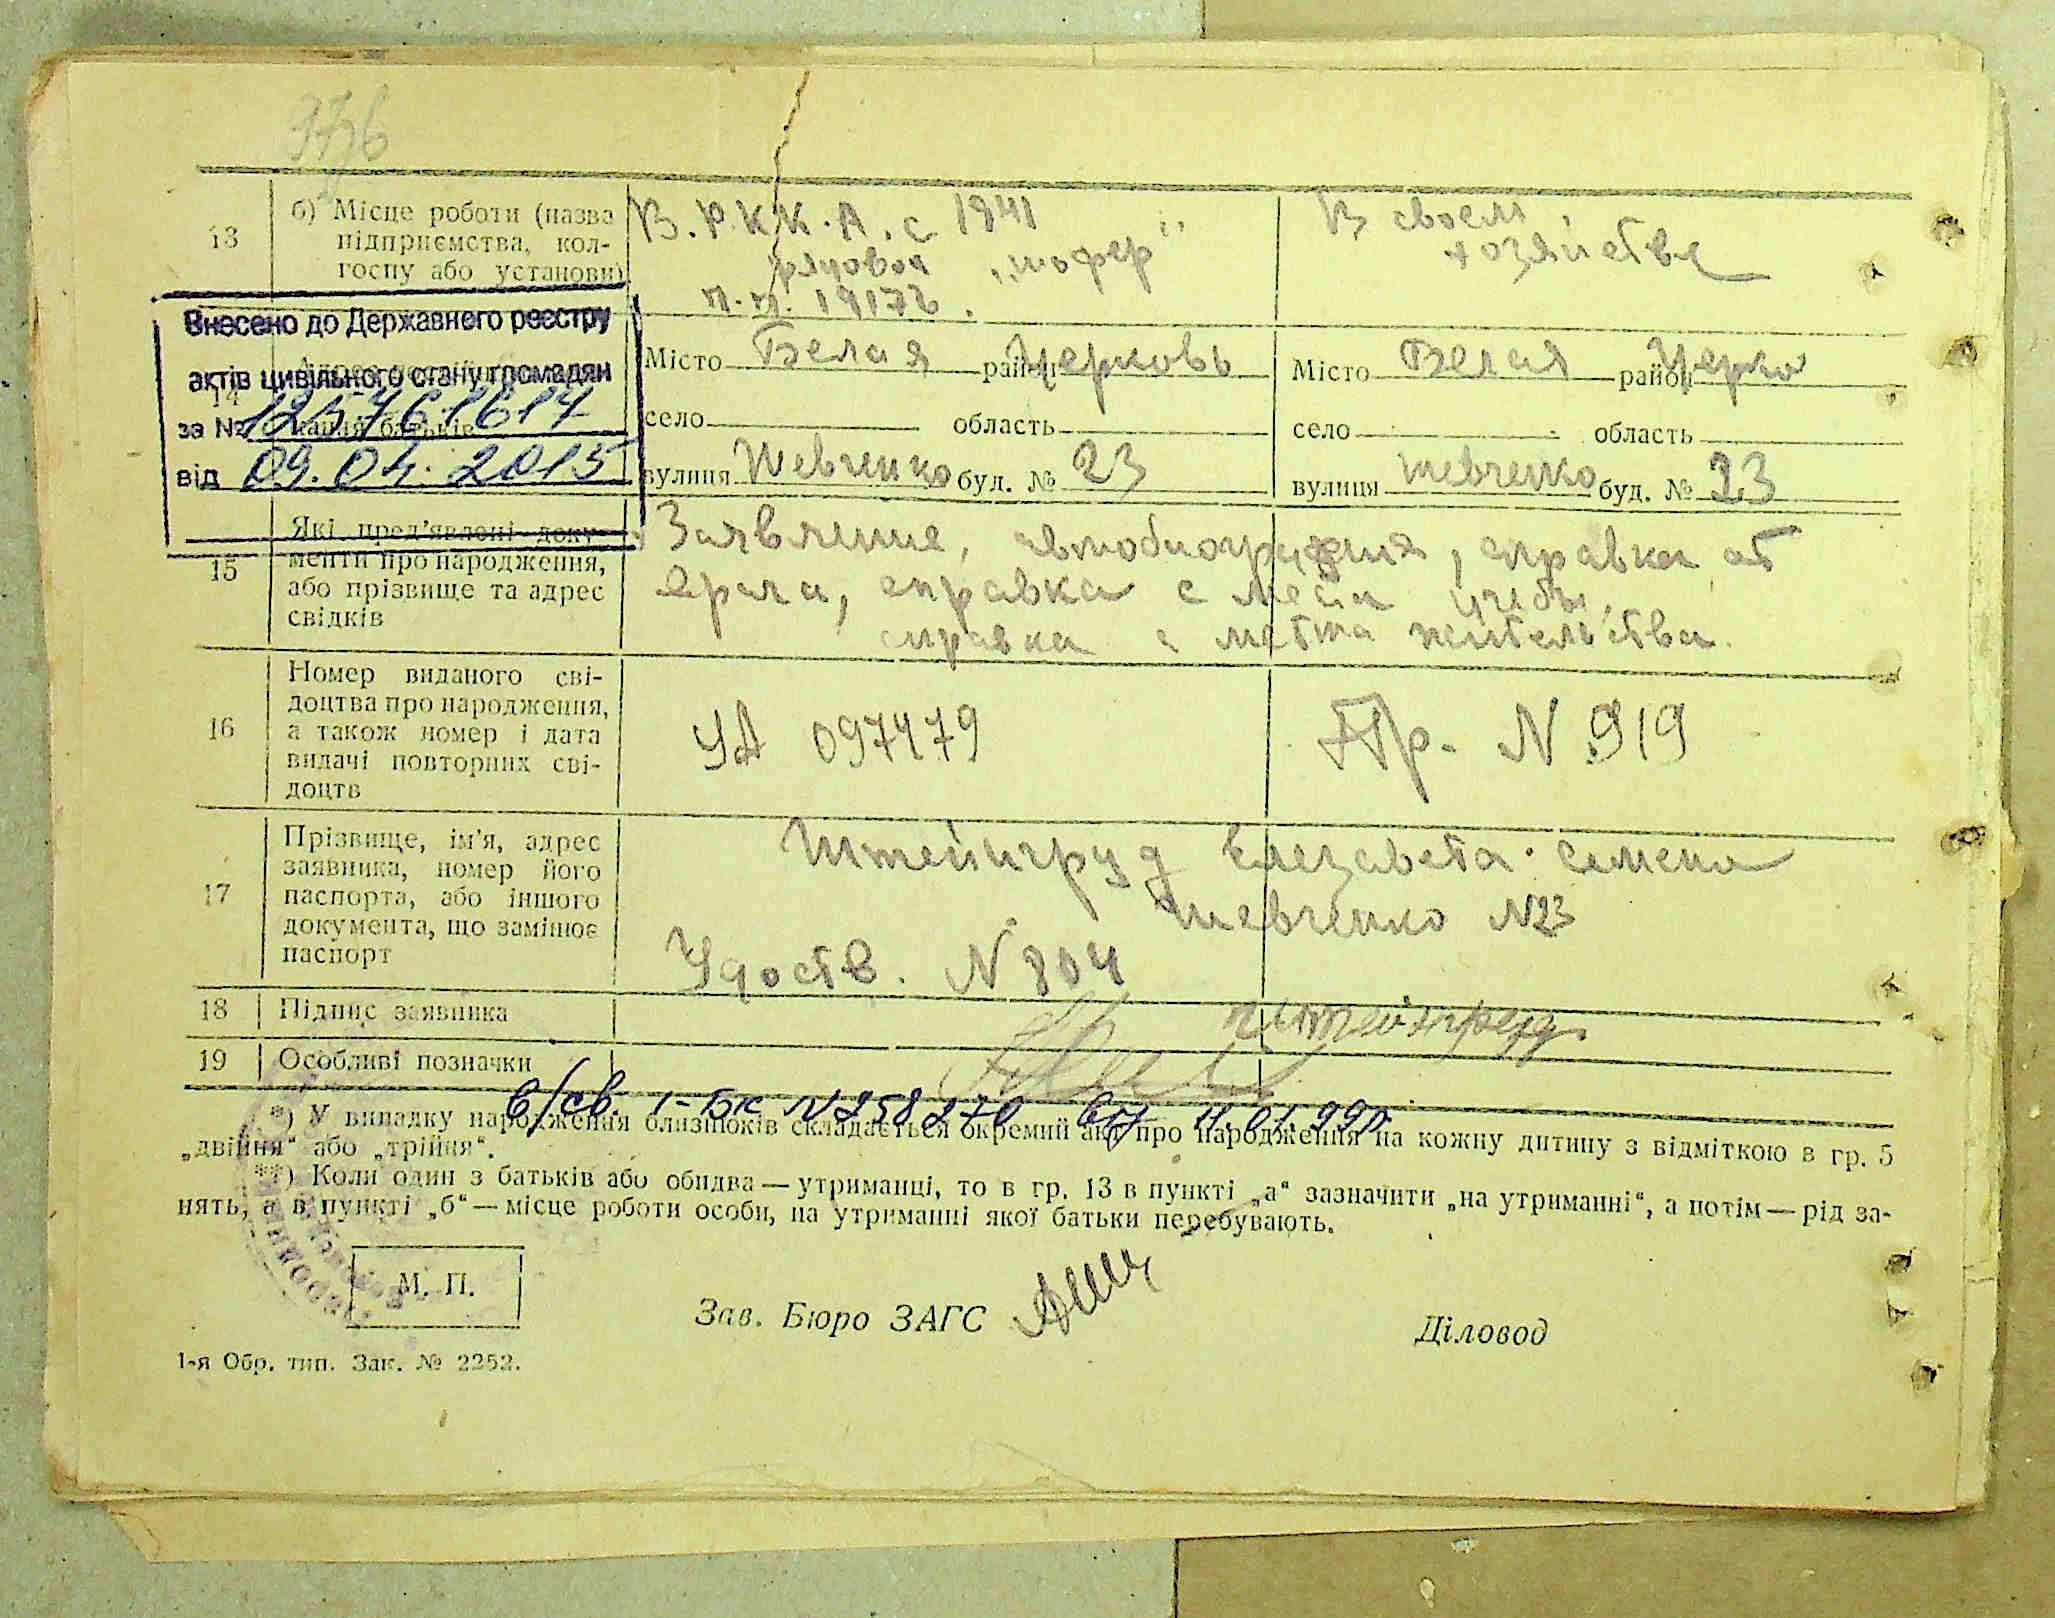 13
б) Місце роботи (назва
підприємства, кол-
госпу або установи)
В. Р.К.К.А. с 1941
рядовой „шофер"
п.п. 19176.
В своем
хозяйстве
Внесено до Державного реєстру
актів цивільного стану громадян
за №
від 09.04.2015
14
Місто Белая район Церковь
село область
вулиця Шевченко буд. № 23
Місто Белая район Церко
село область
вулиця Шевченко буд. № 23
15
Які пред'явлені доку-
менти про народження,
або прізвище та адрес
свідків
Заявление, автобиография, справка от
врача, справка с места учебы,
справка с места жительства.
16
Номер виданого сві-
доцтва про народження,
а також номер і дата
видачі повторних сві-
доцтв
УА 097479
Пр. N 919
17
Прізвище, ім'я, адрес
заявника, номер його
паспорта, або іншого
документа, що замінює
паспорт
Штейнгруд Елезавета Семено
Шевченко N23
Удоств. N 804
18 Підпис заявника
Штейнгруд
19 Особливі позначки
в/св. 1-БК N 258270 від 11.01.99р.
*) У випадку народження близнюків складається окремий акт про народження на кожну дитину з відміткою в гр. 5
„двійня" або „трійня".
**) Коли один з батьків або обидва — утриманці, то в гр. 13 в пункті „а" зазначити „на утриманні", а потім — рід за-
нять, а в пункті „б" — місце роботи особи, на утриманні якої батьки перебувають.
М. П.
Зав. Бюро ЗАГС
Діловод
1-я Обр. тип. Зак. № 2252.